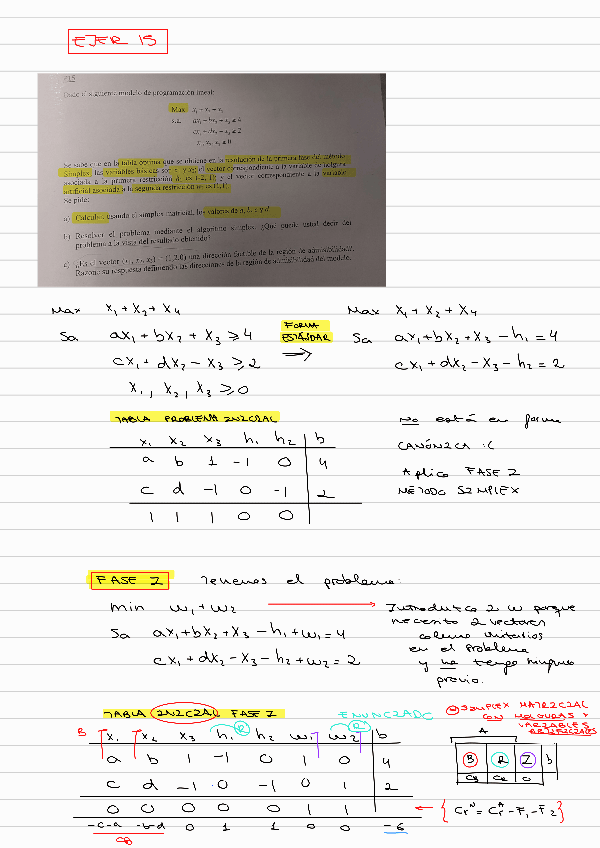 EJER 15
#15
Dado el siguiente modelo de programación lineal:
Max x₁ + x₂ + x₃
s.a. ax₁ + bx₂ + x₃ ≥ 4
cx₁ + dx₂ - x₃ ≥ 2
x₁, x₂, x₃ ≥ 0
Se sabe que en la tabla óptima que se obtiene en la resolución de la primera fase del método
Simplex, las variables básicas son x₁ y x₂; el vector correspondiente a la variable de holgura
asociada a la primera restricción h₁ es (-2, 1) y el vector correspondiente a la variable
artificial asociada a la segunda restricción es (-1,1).
Se pide:
a) Calcular, usando el simplex matricial, los valores de a, b, c y d.
b) Resolver el problema mediante el algoritmo simplex. ¿Qué puede usted decir del
problema a la vista del resultado obtenido?
c) ¿Es el vector (x₁, x₂, x₃) = (1,2,0) una dirección factible de la región de admisibilidad?
Razone su respuesta definiendo las direcciones de la región de admisibilidad del modelo.
Max x₁ + x₂ + x₄
Sa ax₁ + bx₂ + x₃ ≥ 4
cx₁ + dx₂ - x₃ ≥ 2
x₁, x₂, x₃ ≥ 0
FORMA ESTÁNDAR
⇒
Max x₁ + x₂ + x₄
Sa ax₁ + bx₂ + x₃ - h₁ = 4
cx₁ + dx₂ - x₃ - h₂ = 2
TABLA PROBLEMA INICIAL
x₁ x₂ x₃ h₁ h₂ b
a b 1 -1 0 4
c d -1 0 -1 2
1 1 1 0 0
No está en forma
CANÓNICA :(
Aplico FASE I
MÉTODO SIMPLEX
FASE I Tenemos el problema:
min w₁ + w₂
Sa ax₁ + bx₂ + x₃ - h₁ + w₁ = 4
cx₁ + dx₂ - x₃ - h₂ + w₂ = 2
Introduzco 2 w porque
necesito 2 vectores
columna unitarios
en el problema
y no tengo ninguno
previo.
TABLA INICIAL FASE I
ENUNCIADO
B x₁ x₂ x₃ h₁ h₂ w₁ w₂ b
R
R
a b 1 -1 0 1 0 4
c d -1 0 -1 0 1 2
0 0 0 0 0 1 1
-c-a -b-d 0 1 1 0 0 -6
CB
SIMPLEX MATRICIAL
CON HOLGURAS Y
VARIABLES
ARTIFICIALES
A
B R I b
CB CR 0
{ Cr^N = Cr^A - F₁ - F₂ }